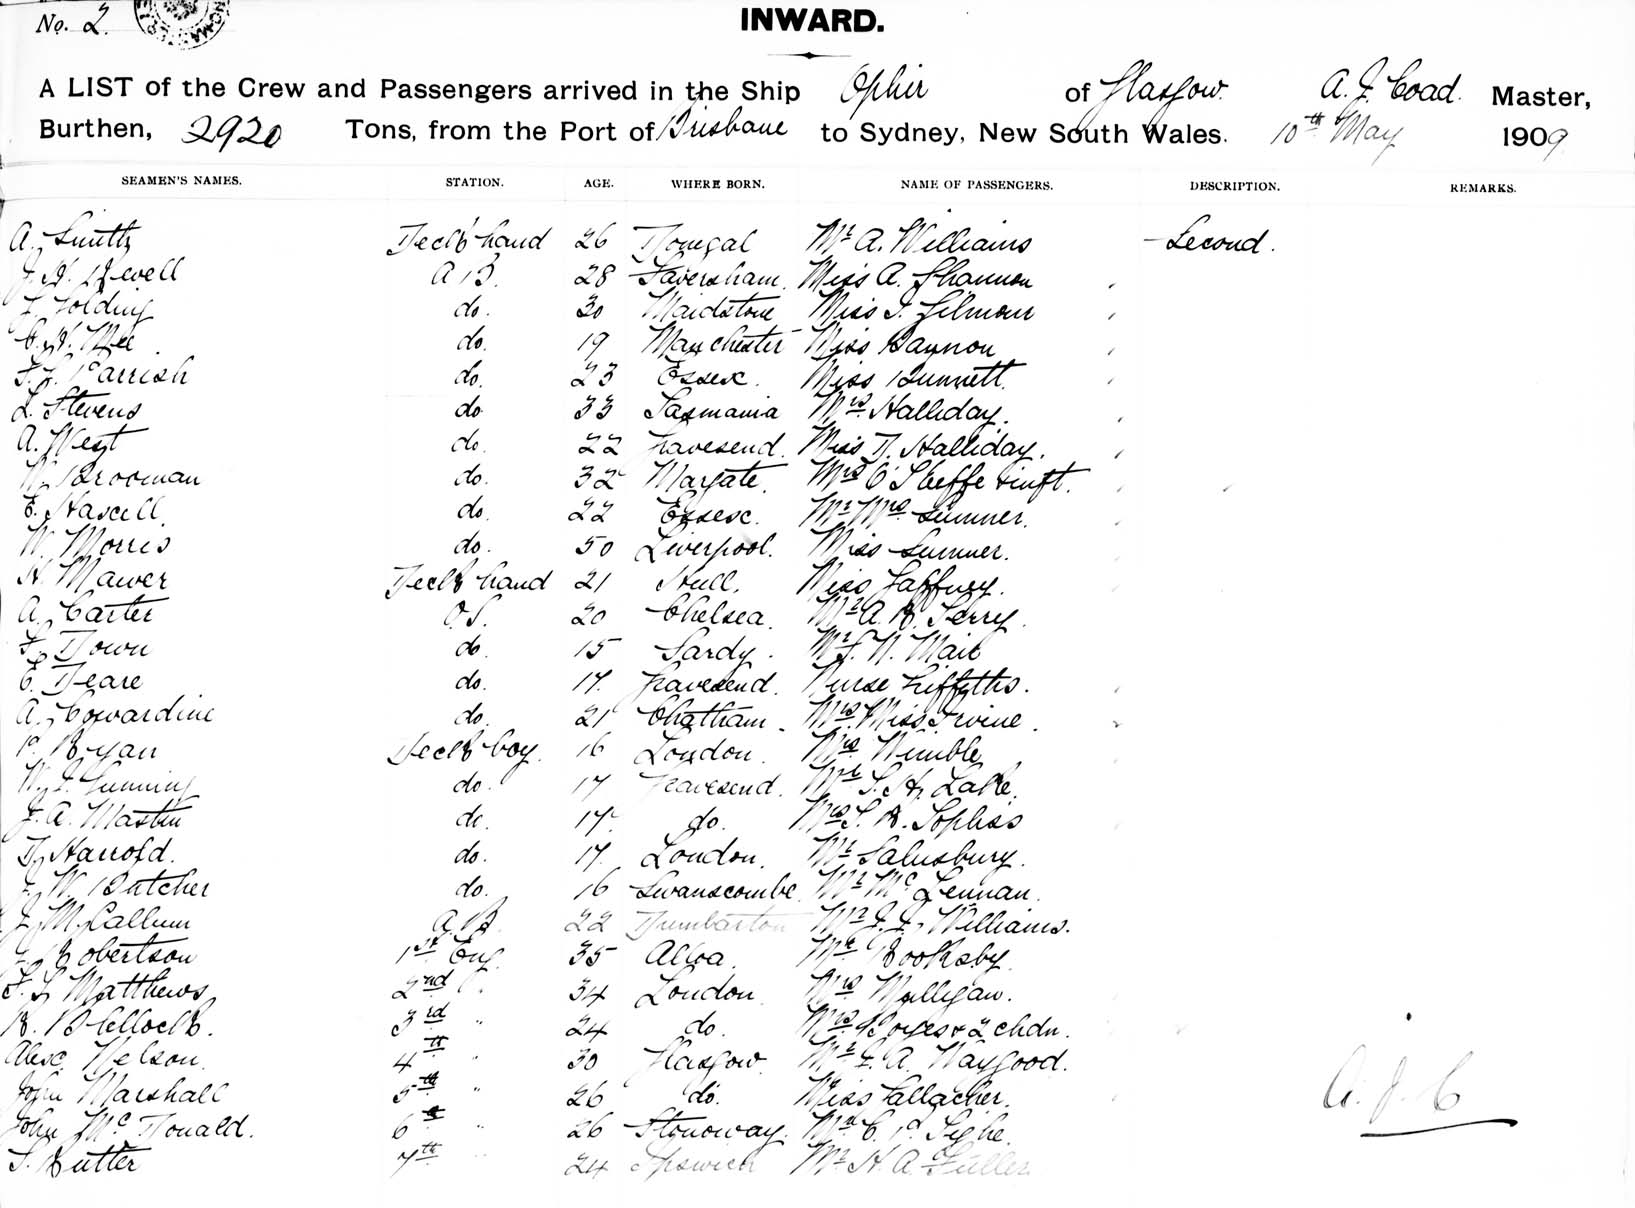 No. 2.
INWARD.
A LIST of the Crew and Passengers arrived in the Ship Ophir of Glasgow. A. J. Coad. Master,
Burthen, 2920 Tons, from the Port of Brisbane to Sydney, New South Wales. 10th May 1909
SEAMEN'S NAMES. STATION. AGE. WHERE BORN. NAME OF PASSENGERS. DESCRIPTION. REMARKS.
A. Deck hand 26 Donegal Mr A. Williams Second.
J. H. Jewell A.B. 28 Faversham. Miss A. Shannon
F. Golding do. 30 Maidstone Miss I. Gilmour
C. H. Mee do. 19 Manchester Miss Bannon
F. Parrish do. 23 Essex. Miss Bunnett.
L. Stevens do 33 Tasmania Mrs. Halliday.
A. West do. 22 Gravesend. Miss D. Halliday.
W. Brooman do. 32 Margate. Mrs O'
E. Hascell. do. 22 Essex. Mr Mrs. Sumner.
W. Morris do. 50 Liverpool. Miss Sumner.
H. Mawer Deck hand 21 Hull. Miss Gaffney.
A. Carter O.S. 20 Chelsea. Mr A. R. Terry.
F. Down do. 15 Mr F. N. Mait
E. Deare do. 17. Gravesend. Nurse Griffyths.
A. Cowardine do. 21 Chatham. Mrs. Miss Irvine.
P. Ryan Deck boy. 16 London. Mrs Wimble
W. J. Gunning do. 17 Gravesend. Mr S. H. Lake.
J. A. Mastin do. 17. do. Mrs S. R.
D. Harrold. do. 17. London. Mr Salusbury.
J. W. Butcher do. 16 Swanscombe. Mr McLennan.
J. McCallum A.B. 22 Dumbarton Mr J. J. Williams.
J. Robertson 1st Eng. 35 Alloa. Mr Rooksby.
F. S. Matthews 2nd " 34 London. Mrs Mulligan.
R. Blellock. 3rd " 24 do. Mrs. Boyes & 2 chdn.
Alex. Nelson. 4th " 30 Glasgow. Mr F. A. Waygood.
John Marshall 5th " 26 do. Miss Gallacher.
John McDonald. 6th " 26 Stornoway. Mr C. P. Tighe.
S. Rutter 7th " 24 Ipswich Mr H. A. Fuller
A. J. C